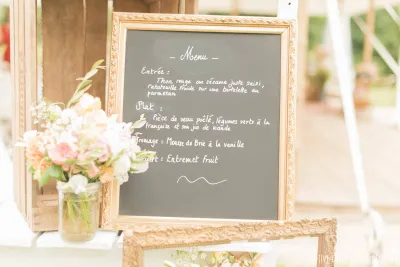 - Menu -
Entrée :
Thon rouge au sésame juste saisi,
Ratatouille froide sur une tartelette au
parmesan
Plat :
Pièce de veau poêlé, légumes verts à la
française et son jus de viande
romage : Morceau de Brie à la vanille
ert : Entremet Fruit